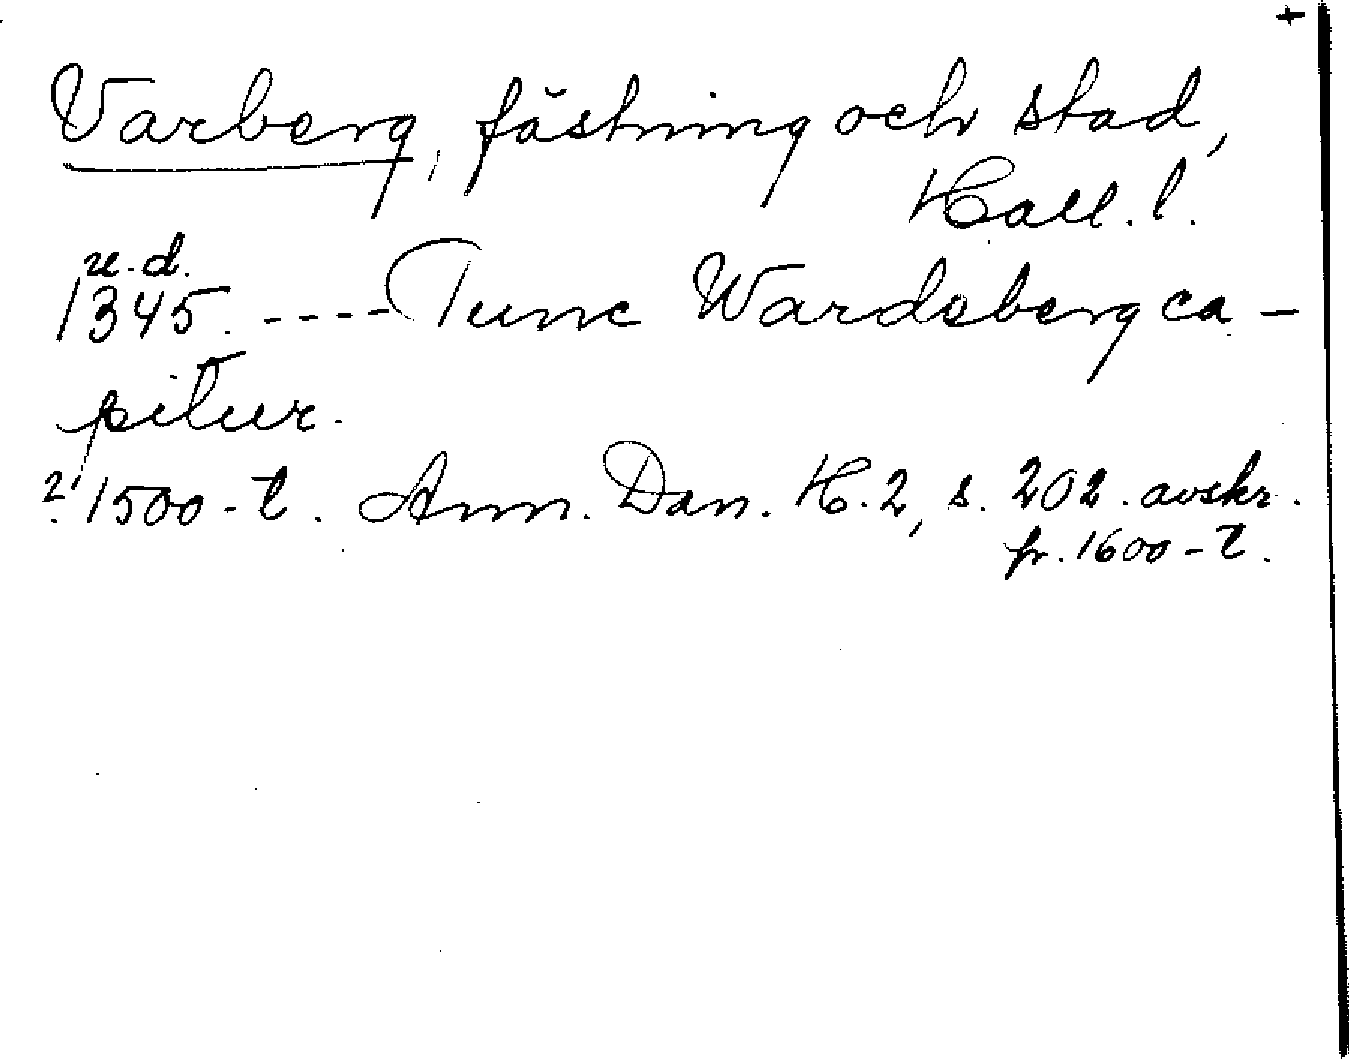 +
Varberg, fästning och stad,
Hall. l.
u.d.
1345. ---- Tunc Wardsberg ca-
pitur.
? 1500-t. Ann. Dan. H.2, s. 202. avskr.
fr. 1600-t.